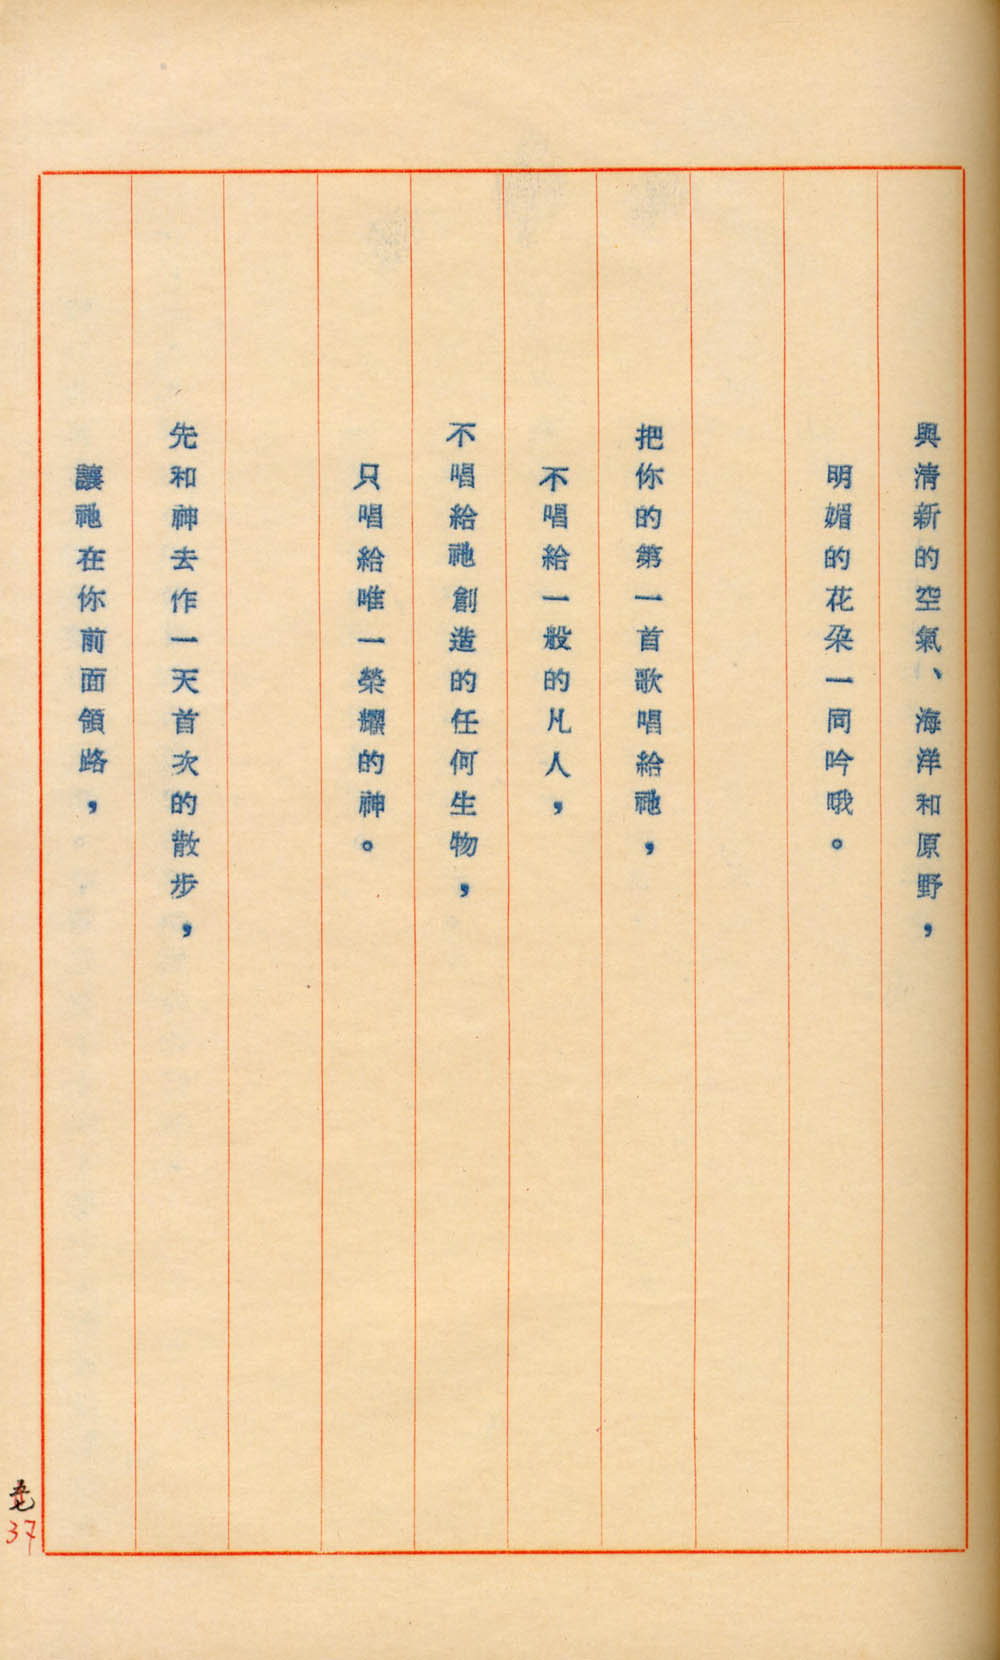 與清新的空氣、海洋和原野，
明媚的花朶一同吟哦。
把你的第一首歌唱給祂，
不唱給一般的凡人，
不唱給祂創造的任何生物，
只唱給唯一榮耀的神。
先和神去作一天首次的散步，
讓祂在你前面領路，
37